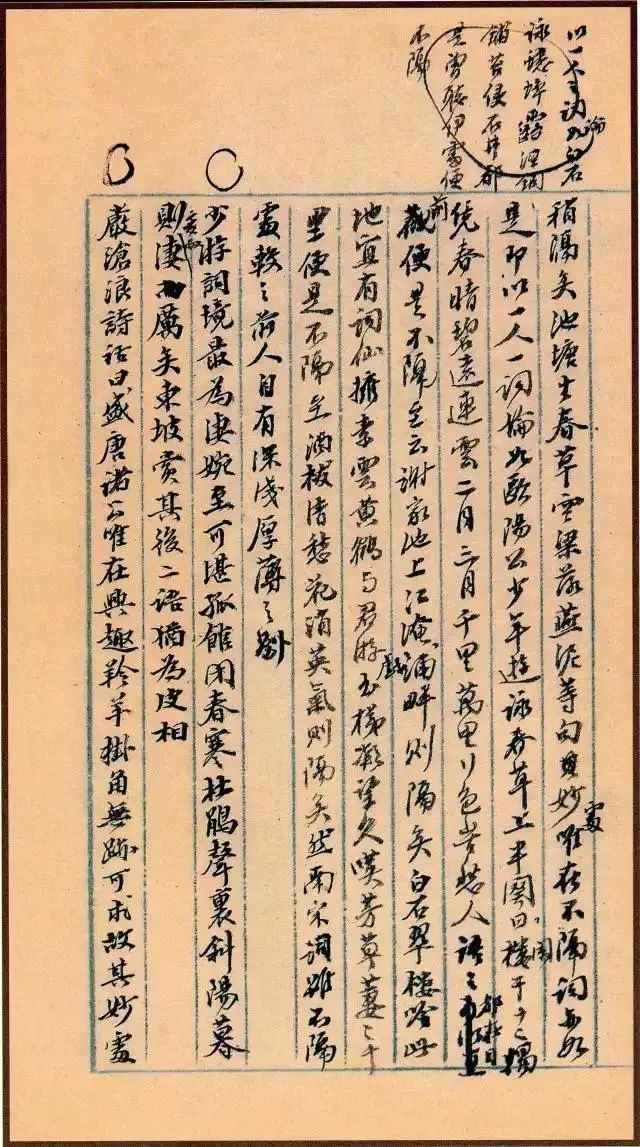 詠蟋蟀露溼銅
鋪苔侵石井都
是曾聽伊處便
不隔
稍隔矣池塘生春草空梁落燕泥等句其妙處唯在不隔詞亦如
是即以一人一詞論如歐陽公少年遊詠春草上半闋曰闌干十二獨
凭春晴碧遠連雲二月三月千里萬里行色苦愁人語語都在目
前便是不隔至云謝家池上江淹浦畔則隔矣白石翠樓吟此
地宜有詞仙擁素雲黃鶴與君游戲玉梯凝望久嘆芳草萋萋千
里便是不隔至酒祓清愁花消英氣則隔矣然南宋詞雖不隔
處較之前人自有深淺厚薄之別
少游詞境最為淒婉至可堪孤館閉春寒杜鵑聲裏斜陽暮
則變而淒厲矣東坡賞其後二語猶為皮相
嚴滄浪詩話曰盛唐諸公唯在興趣羚羊掛角無跡可求故其妙處